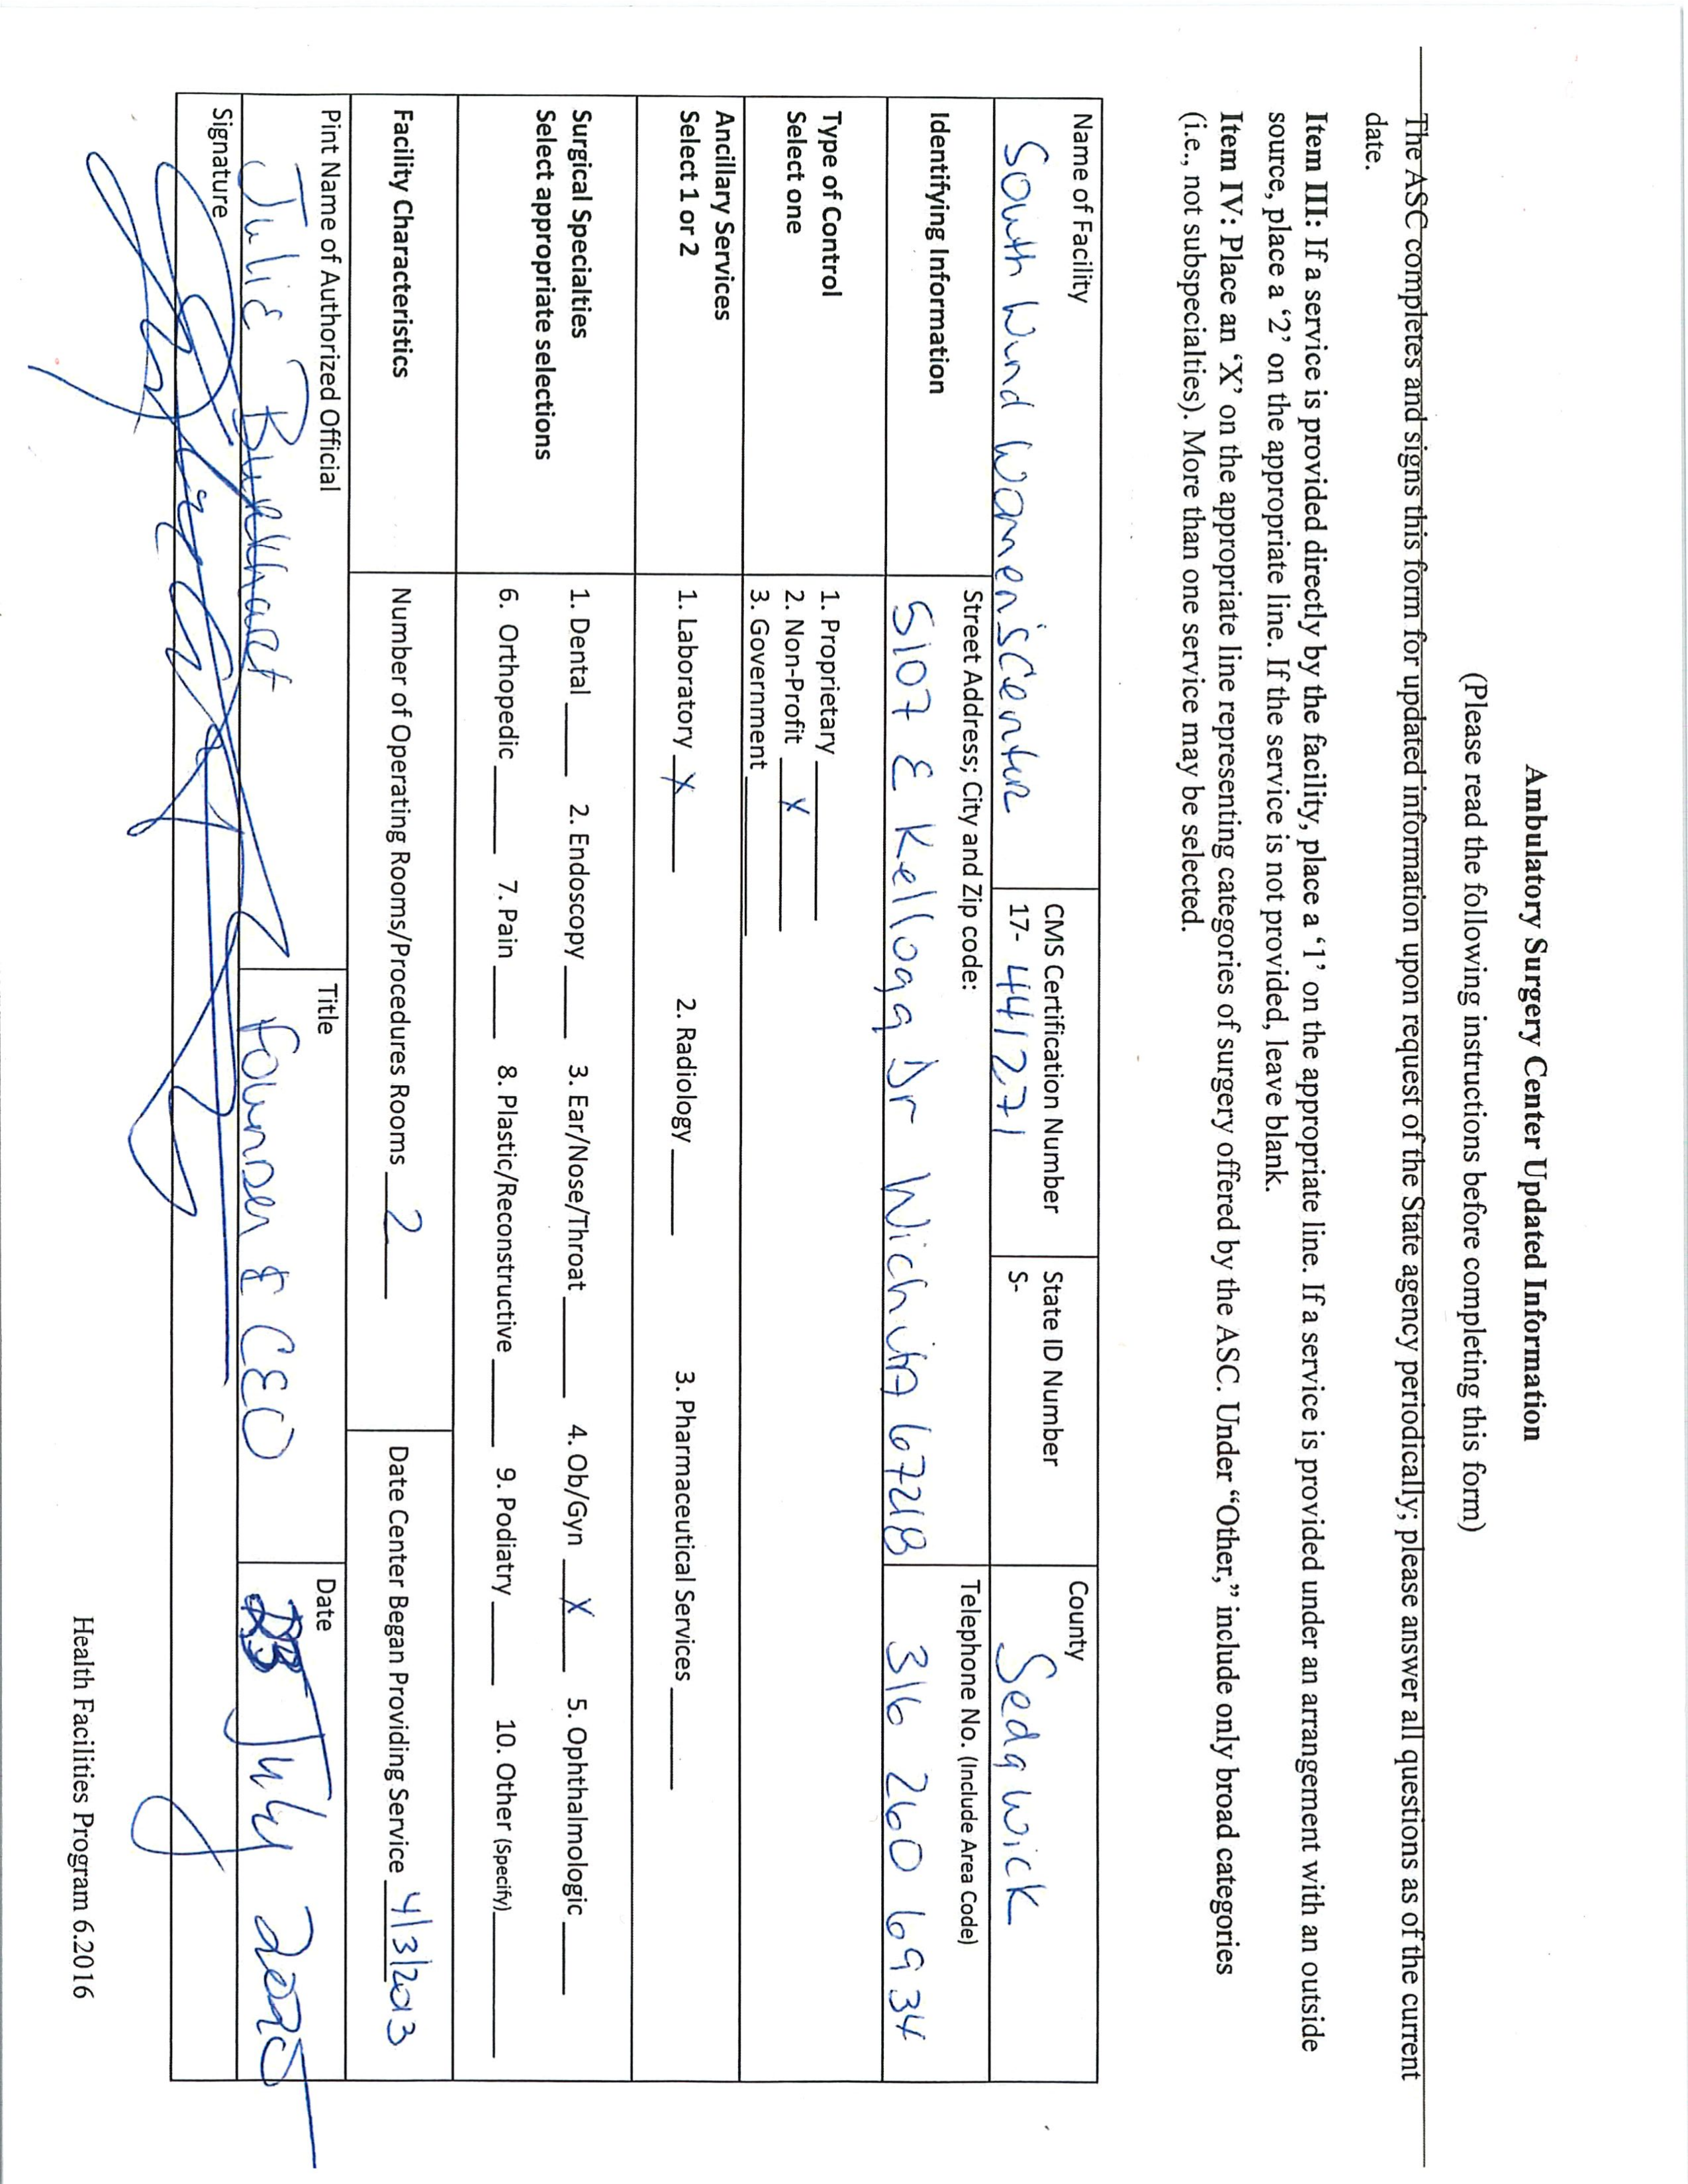 Ambulatory Surgery Center Updated Information
(Please read the following instructions before completing this form)
The ASC completes and signs this form for updated information upon request of the State agency periodically; please answer all questions as of the current
date.
Item III: If a service is provided directly by the facility, place a ‘1’ on the appropriate line. If a service is provided under an arrangement with an outside
source, place a ‘2’ on the appropriate line. If the service is not provided, leave blank.
Item IV: Place an ‘X’ on the appropriate line representing categories of surgery offered by the ASC. Under “Other,” include only broad categories
(i.e., not subspecialties). More than one service may be selected.
Name of Facility
South Wind Women's Center
CMS Certification Number
17- 441271
State ID Number
S-
County
Sedgwick
Identifying Information
Street Address; City and Zip code:
5107 E Kellogg Dr Wichita 67218
Telephone No. (Include Area Code)
316 260 6934
Type of Control
Select one
1. Proprietary
2. Non-Profit X
3. Government
Ancillary Services
Select 1 or 2
1. Laboratory X 2. Radiology 3. Pharmaceutical Services
Surgical Specialties
Select appropriate selections
1. Dental 2. Endoscopy 3. Ear/Nose/Throat 4. Ob/Gyn X 5. Ophthalmologic
6. Orthopedic 7. Pain 8. Plastic/Reconstructive 9. Podiatry 10. Other (Specify)
Facility Characteristics
Number of Operating Rooms/Procedures Rooms 2
Date Center Began Providing Service 4/3/2013
Pint Name of Authorized Official
Julie Burkhart
Title
Founder & CEO
Date
July 2025
Signature
Health Facilities Program 6.2016